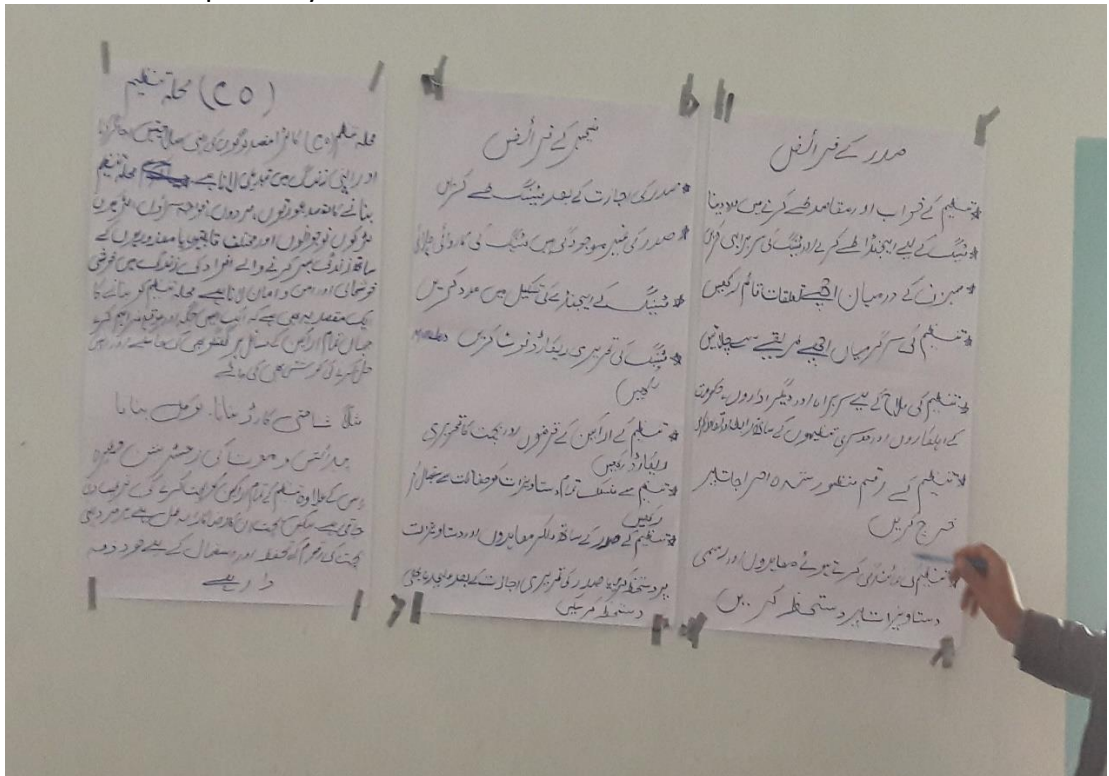 صدر کے فرائض
* تنظیم کے خواب اور مقاصد طے کرنے میں مدد دینا
* میٹنگ کے لیے ایجنڈا طے کرے اور میٹنگ کی سربراہی کریں
* ممبرز کے درمیان اچھے تعلقات قائم رکھیں
* تنظیم کی سرگرمیاں اچھے طریقے سے چلائیں
* تنظیم کی فلاح کے لیے سربراہ اور دیگر اداروں، حکومت
کے اہلکاروں اور دوسری تنظیموں کے ساتھ رابطہ
* تنظیم کے رقم منظور شدہ اخراجات پر
خرچ کریں
* تنظیم کی نمائندگی کرتے ہوئے معاہدوں اور رسمی
دستاویزات پر دستخط کریں
منیجر کے فرائض
* صدر کی اجازت کے بعد میٹنگ طے کریں
* صدر کی غیر موجودگی میں میٹنگ کی کاروائی چلائی
* میٹنگ کے ایجنڈے کی تشکیل میں مدد کریں
* میٹنگ کی تحریری ریکارڈ نوٹ کریں
رکھیں
* تنظیم کے اراکین کے قرضوں اور بچت کا تحریری
ریکارڈ رکھیں
* تنظیم سے منسلک تمام دستاویزات کو حفاظت سے سنبھال کر
رکھیں
* تنظیم کے صدر کے ساتھ ملکر معاہدوں اور دستاویزات
پر دستخط کریں، صدر کو تحریری اجازت کے بعد
دستخط کریں
(CO) محلہ تنظیم
محلہ تنظیم (CO) کا بڑا مقصد لوگوں کی چھپی صلاحیتیں اجاگر کرنا
اور اپنی زندگی میں تبدیلی لانا ہے محلہ تنظیم
بنانے کا مقصد عورتوں، مردوں، خواجہ سراوں، لڑکیوں
لڑکوں نوجوانوں اور مختلف قابلیتوں یا معذوریوں کے
ساتھ زندگی بسر کرنے والے افراد کی زندگی میں
خوشحالی اور امن و امان لانا ہے محلہ تنظیم کو بنانے کا
ایک مقصد یہ بھی ہے کہ ایک ایسی جگہ اور موقع فراہم کرے
جہاں تمام اراکین کے مسائل پر گفتگو بھی کی جا سکے اور
حل کرنے کی کوشش بھی کی جائے
مثلاً شناختی کارڈ بنانا، ٹوکن بنانا
پیدائش و موت کی رجسٹریشن وغیرہ
اس کے علاوہ تنظیم کے تمام اراکین کو بچت کرنے کی ترغیب دی
جاتی ہے لیکن بچت ان کا رضاکارانہ عمل ہے
بچت کی رقم کو تحفظ اور استعمال کے لیے خود ذمہ
دار ہے